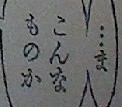 …ま
こんな
ものか